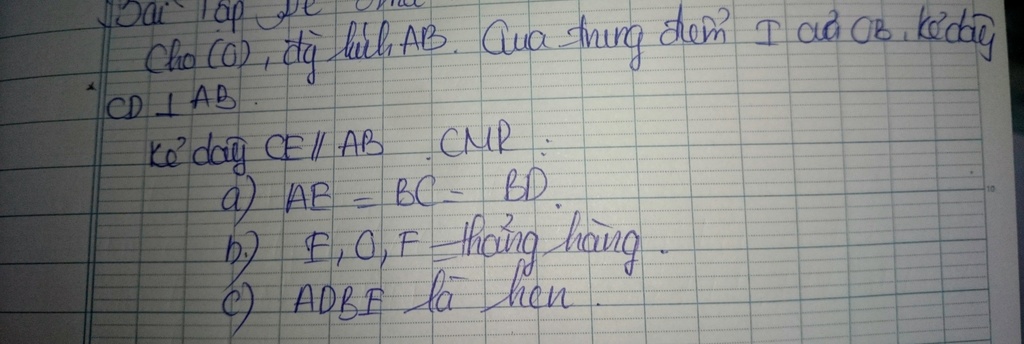 Bài tập về
Cho (O), đg kính AB. Qua trung điểm I của OB, kẻ dây
CD ⊥ AB.
Kẻ dây CE // AB. CMR:
a) AE = BC = BD.
b) E, O, F thẳng hàng.
c) ADBE là hcn.